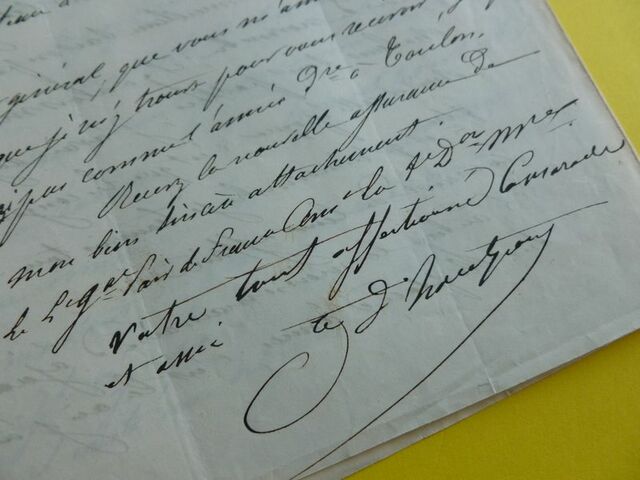 général, que vous ne m'a
que je n'y trouve pour vous recevoir
pas comme l'année dre à Toulon.
Recevez la nouvelle assurance de
mon bien sincère attachement.
Le Lt gal Pair de France Comt la 8e Don mre
Votre tout affectionné Camarade
et ami